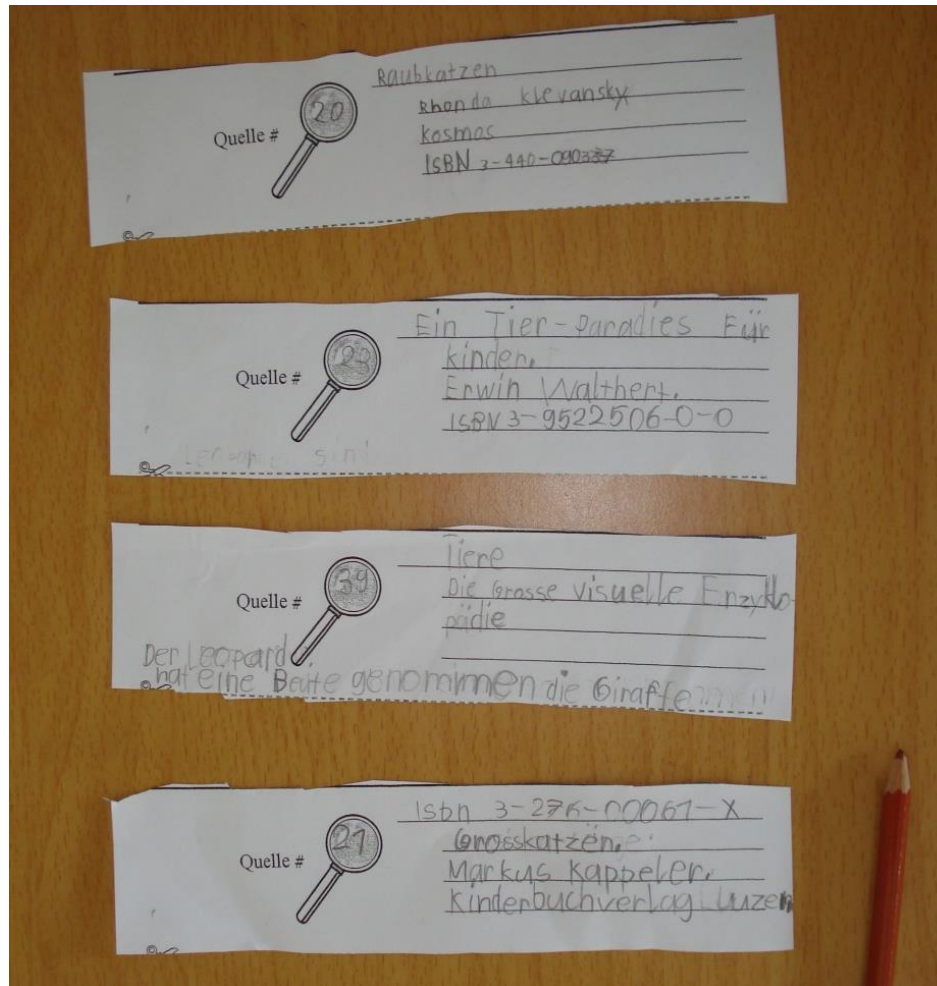 Raubkatzen
Quelle # 20
Rhonda Klevansky
Kosmos
ISBN 3-440-090337
Ein Tier-Paradies Für
kinder.
Quelle # 23
Erwin Walthert.
ISBN 3-9522506-0-0
sind
Tiere
Quelle # 39
Die Grosse visuelle Enzyklo-
pädie
Der Leopard
hat eine Beute genommen die Giraffe
Isbn 3-276-00061-X
Quelle # 21
Grosskatzen.
Markus Kappeler.
Kinderbuchverlag Luzern